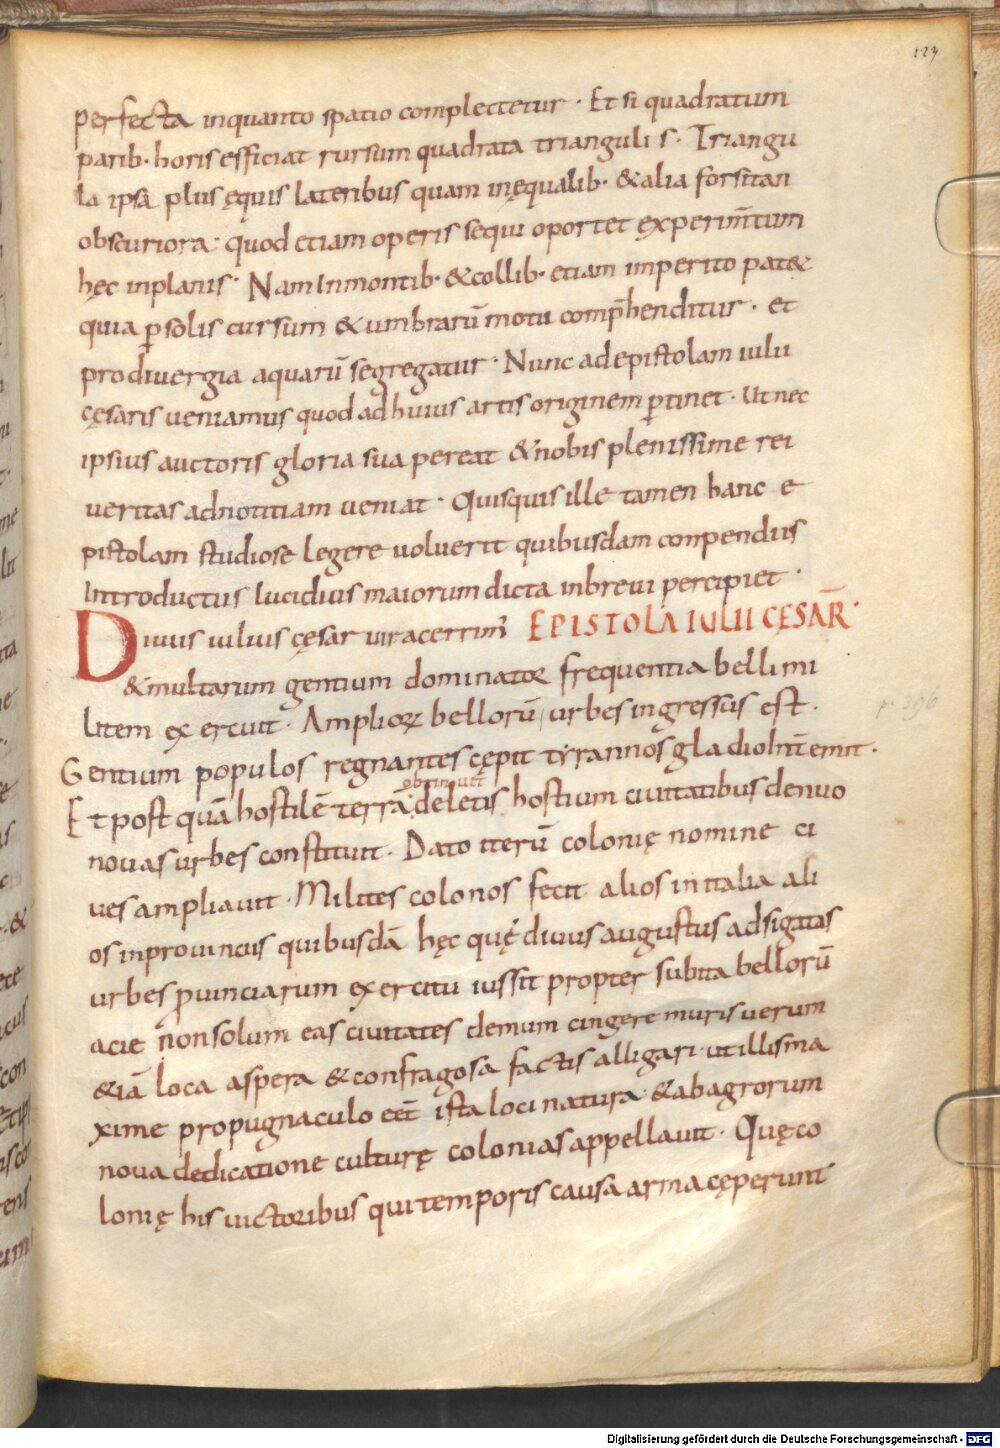 123
perfecta inquanto spatio complectetur · Et si quadratum
parib· horis efficiat rursum quadrata trianguli s · Triangu
la ipsa plus ęquis lateribus quam inęqualib· &alia forsitan
obscuriora · quod etiam operis sequi oportet experim̄tum
hęc inplanis · Nam Inmontib· &collib· etiam imperito pat&
quia p̱ solis cursum &umbrarū motu comp̄henditur · et
prodiuergia aquarū segregatur · Nunc adepistolam iulii
cęsaris ueniamus quod adhuius artis originem p̱tinet · Ut nec
ipsius auctoris gloria sua pereat &nobis plenissime rei
ueritas adnotitiam ueniat · Quisquis ille tamen hanc e
pistolam studiose legere uoluerit quibusdam compendiis
Introductus lucidius maiorum dicta inbreui percipiet ·
Diuus iulius cęsar uir acerrim̄ EPISTOLA IULII CĘSAR̄·
&multarum gentium dominator frequentia belli mi
litem exercuit · Amplior bellorū urbes ingressus est ·
p. 396
Gentium populos regnantes cępit tyrannos gladio luīt emit ·
obtinuet
Et post quā hostilē terrā deletis hostium ciuitatibus denuo
nouas urbes constituit · Dato iterū colonię nomine ci
ues ampliauit · Milites colonos fecit alios in italia ali
os inprouinciis quibusdā hęc quę diuus augustus adsigatas
urbes ꝓuinciarum exercitu iussit propter subita bellorū
acie non solum eas ciuitates demum cingere muris uerum
&iā loca aspera &confragosa factis alligari · ut illis ma
xime propugnaculo eēt ista loci natura · &abagrorum
noua dedicatione culturę colonias appellauit · Quę co
lonię his uictoribus qui temporis causa arma cęperunt
Digitalisierung gefördert durch die Deutsche Forschungsgemeinschaft - DFG